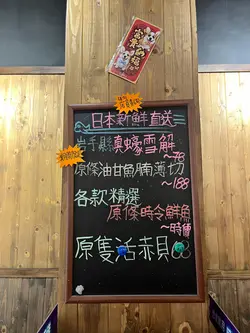 日本新鮮直送
岩手縣真蠔雪解
~78
原條油甘魚腩薄切
~188
各款精選
原條時令鮮魚
~時價
原隻活赤貝